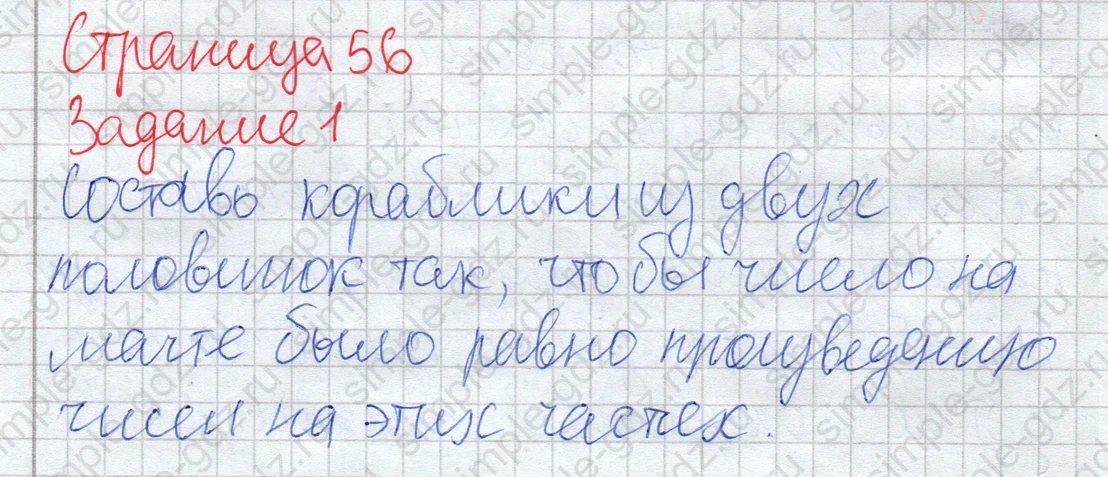 Страница 56
Задание 1
Составь кораблики из двух
половинок так, чтобы число на
мачте было равно произведению
чисел на этих частех.